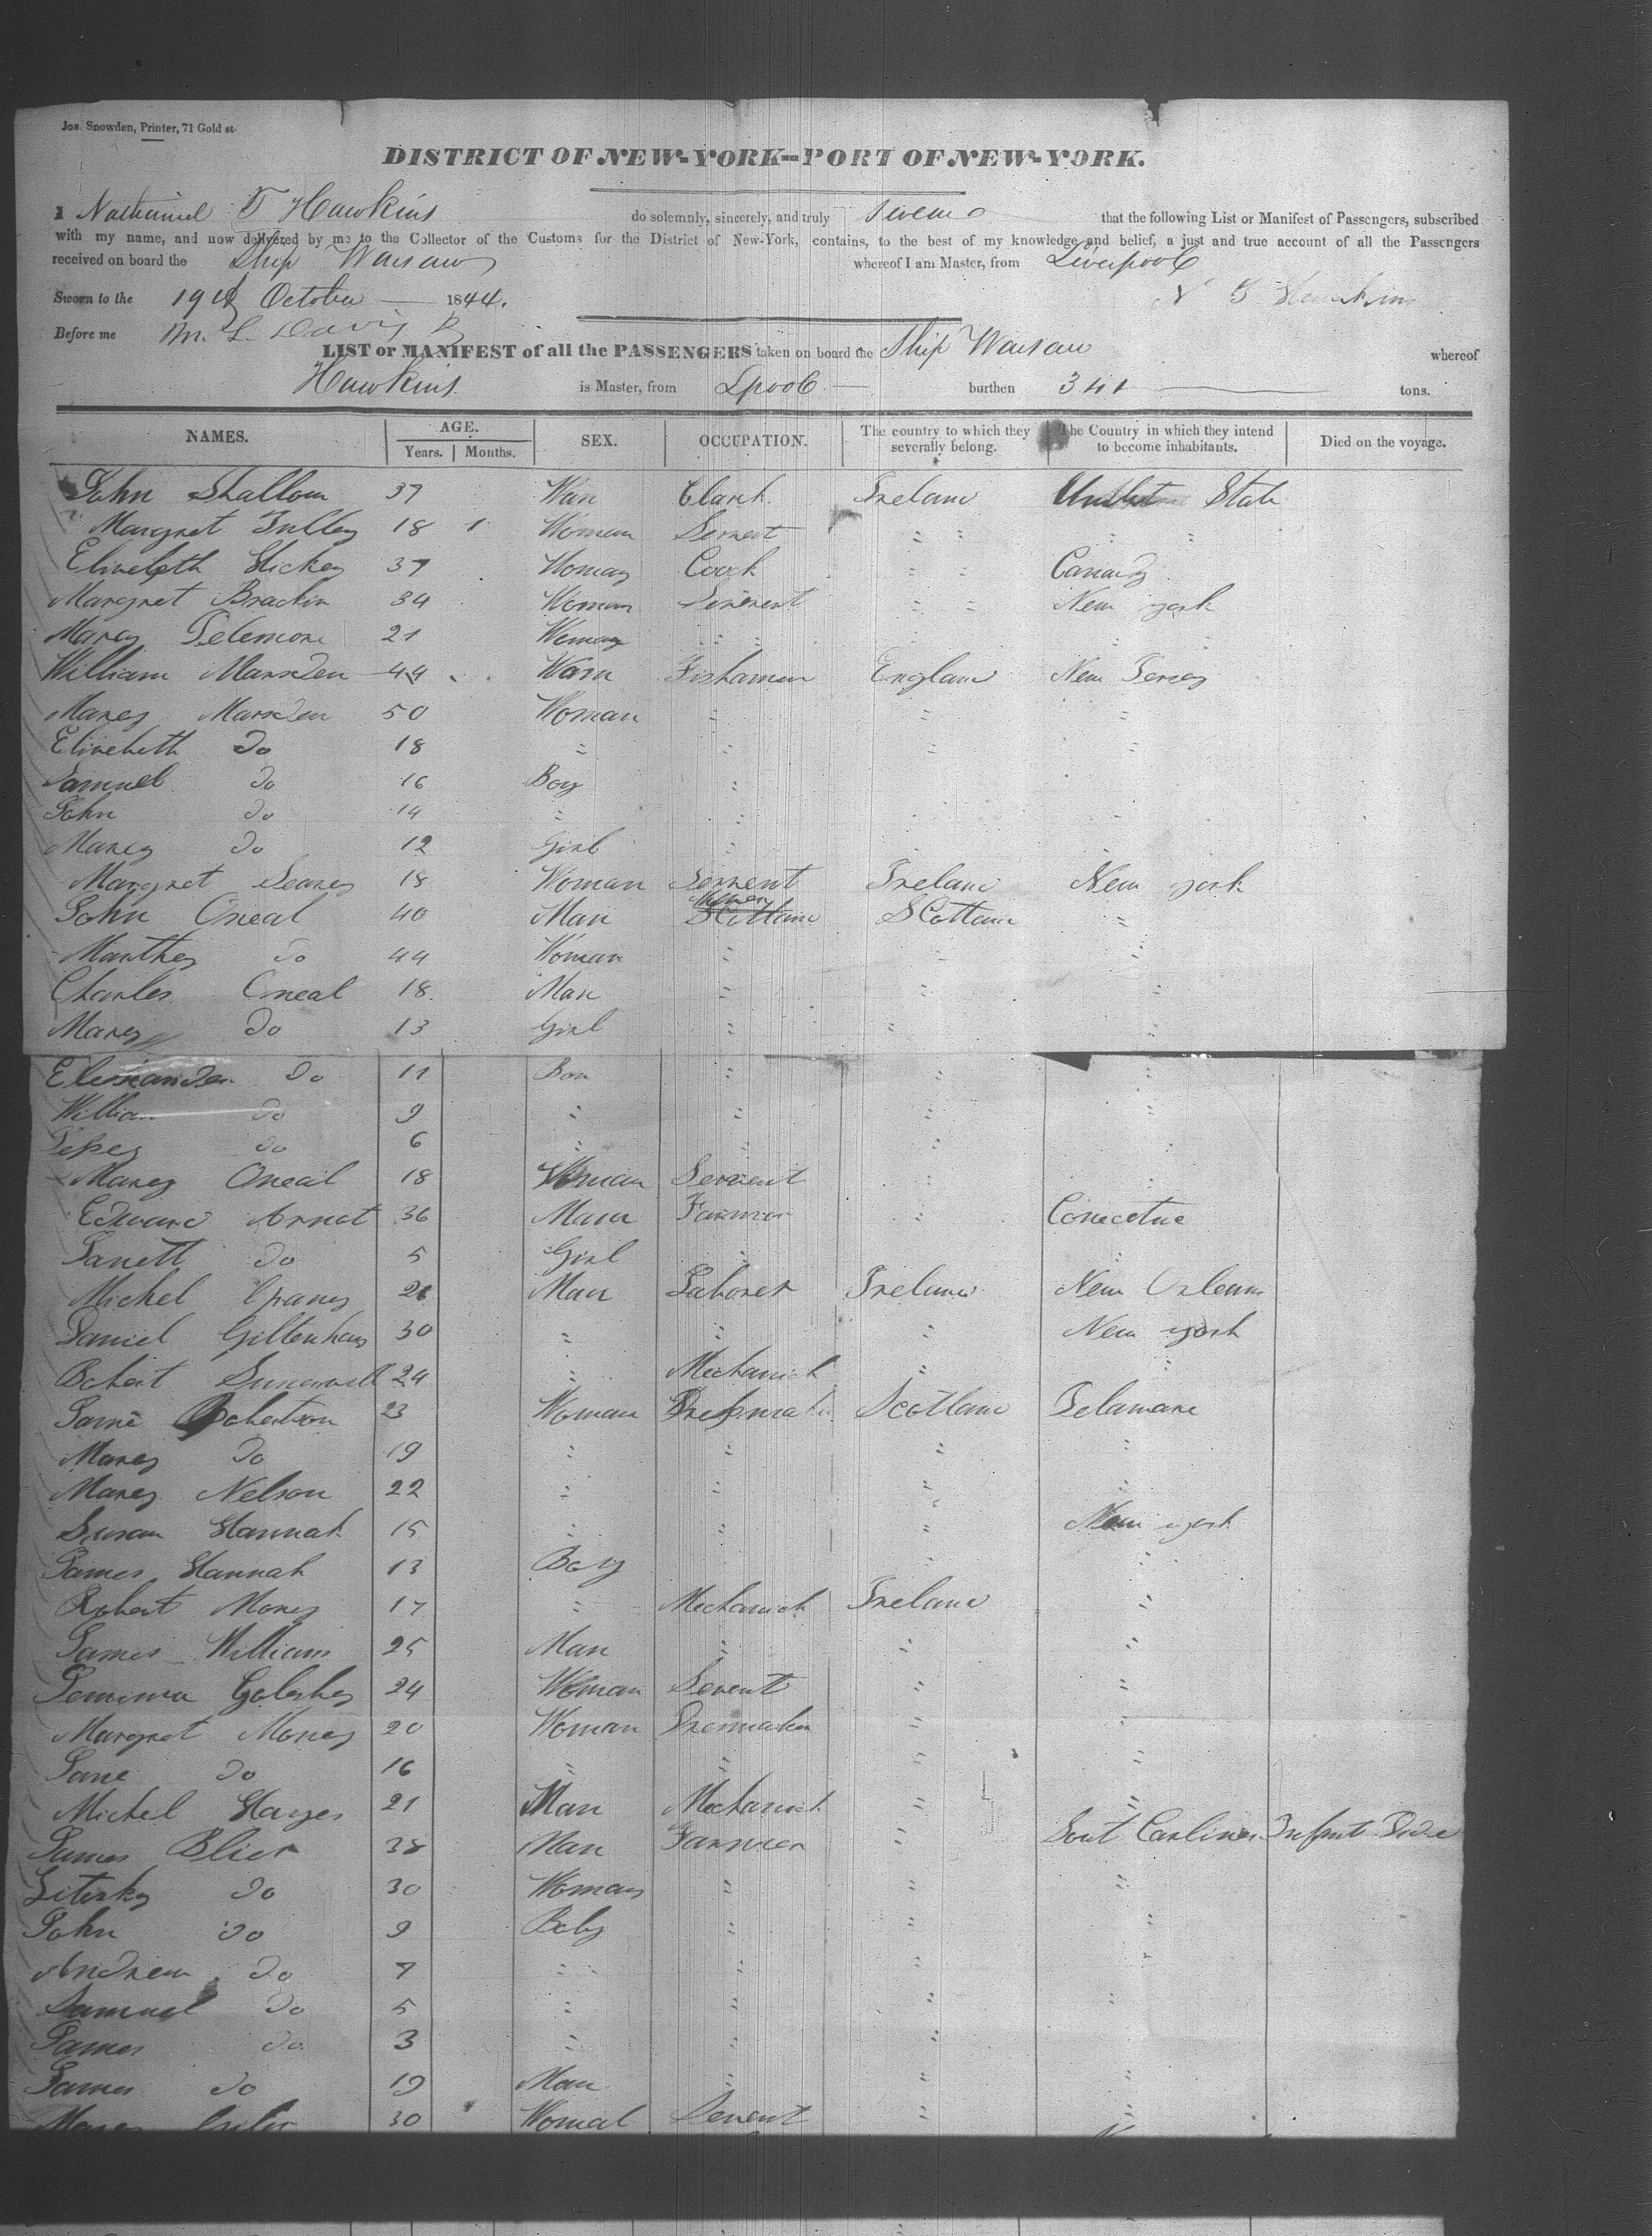 Jos. Snowden, Printer, 71 Gold st.
DISTRICT OF NEW-YORK--PORT OF NEW-YORK.
I Nathaniel T Hawkins do solemnly, sincerely, and truly that the following List or Manifest of Passengers, subscribed
with my name, and now delivered by me to the Collector of the Customs for the District of New-York, contains, to the best of my knowledge and belief, a just and true account of all the Passengers
received on board the Ship Warsaw whereof I am Master, from Liverpool
Sworn to the 19th October 1844. N T Hawkins
Before me
LIST or MANIFEST of all the PASSENGERS taken on board the Ship Warsaw whereof
Hawkins is Master, from Lpool burthen 341 tons.
NAMES. AGE. Years. Months. SEX. OCCUPATION. The country to which they severally belong. The Country in which they intend to become inhabitants. Died on the voyage.
John Shallow 37 Clark Ireland State
Margret 18 1 Woman Servent " " " "
Hickey 37 Woman Coock " " Canady
Margret Brackin 34 Woman " " New york
Marey 21 Woman " "
William Marsden 44 Fishaman England New Jersey
Marey Marsden 50 Woman " " "
Elizebeth Do 18 " " " "
Samuel Do 16 Boy "
John Do 14 " "
Marey Do 12 Girl "
Margret 18 Woman Servent Ireland New york
John Oneal 40 Man Scotland "
Marthey Do 44 Woman " " "
Charles Oneal 18 Man " " "
Marey Do 13 Girl " " "
Do 11 " " "
William Do 9 " " " "
Do 6 " " " "
Marey Oneal 18 Woman Servent " "
Edward Arnot 36 Man Farmer " Conectue
Janett Do 5 Girl " "
Michel 26 Man Laborer Ireland New Orleans
Daniel 30 " " " New york
24 " Mechanick " "
Jane Robertson 23 Woman Scotland Delaware
Marey Do 19 " " " "
Marey Nelson 22 " " " "
Susan Hannah 15 " " " New york
James Hannah 13 Boy " "
Robert Money 17 " Mechanick Ireland "
James Williams 25 Man " " "
Jemima 24 Woman Sevent " "
Margret Money 20 Woman Dresmaker " "
Jane Do 16 " " " "
Michel Hayes 21 Man Mechanick " "
James Blier 38 Man Farmer " Sout Carlina Infant
Do 30 Woman " " "
John Do 9 " " "
Andrew Do 7 " " "
Samuel Do 5 " " " "
James Do 3 " " "
James Do 19 Man " " "
Marey 30 Sevent " "